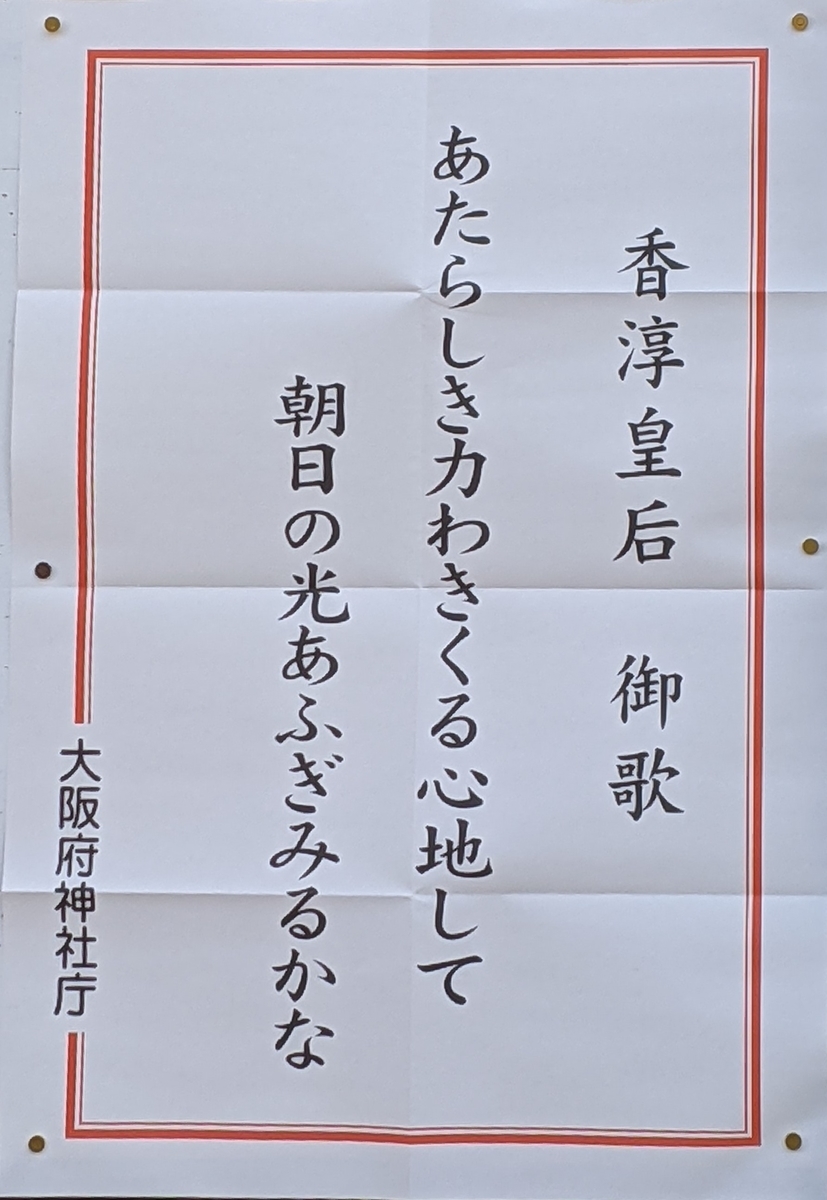 香淳皇后　御歌
あたらしき力わきくる心地して
朝日の光あふぎみるかな
大阪府神社庁